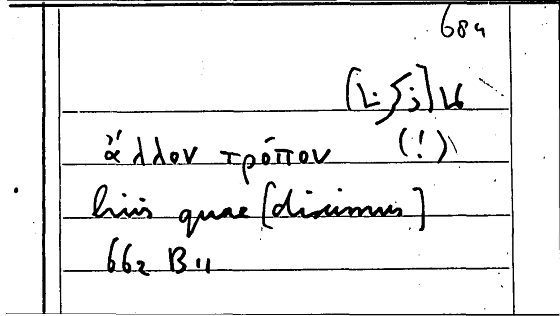 684
ἄλλον τρόπον (!)
huis quae [diximus]
662 B 11